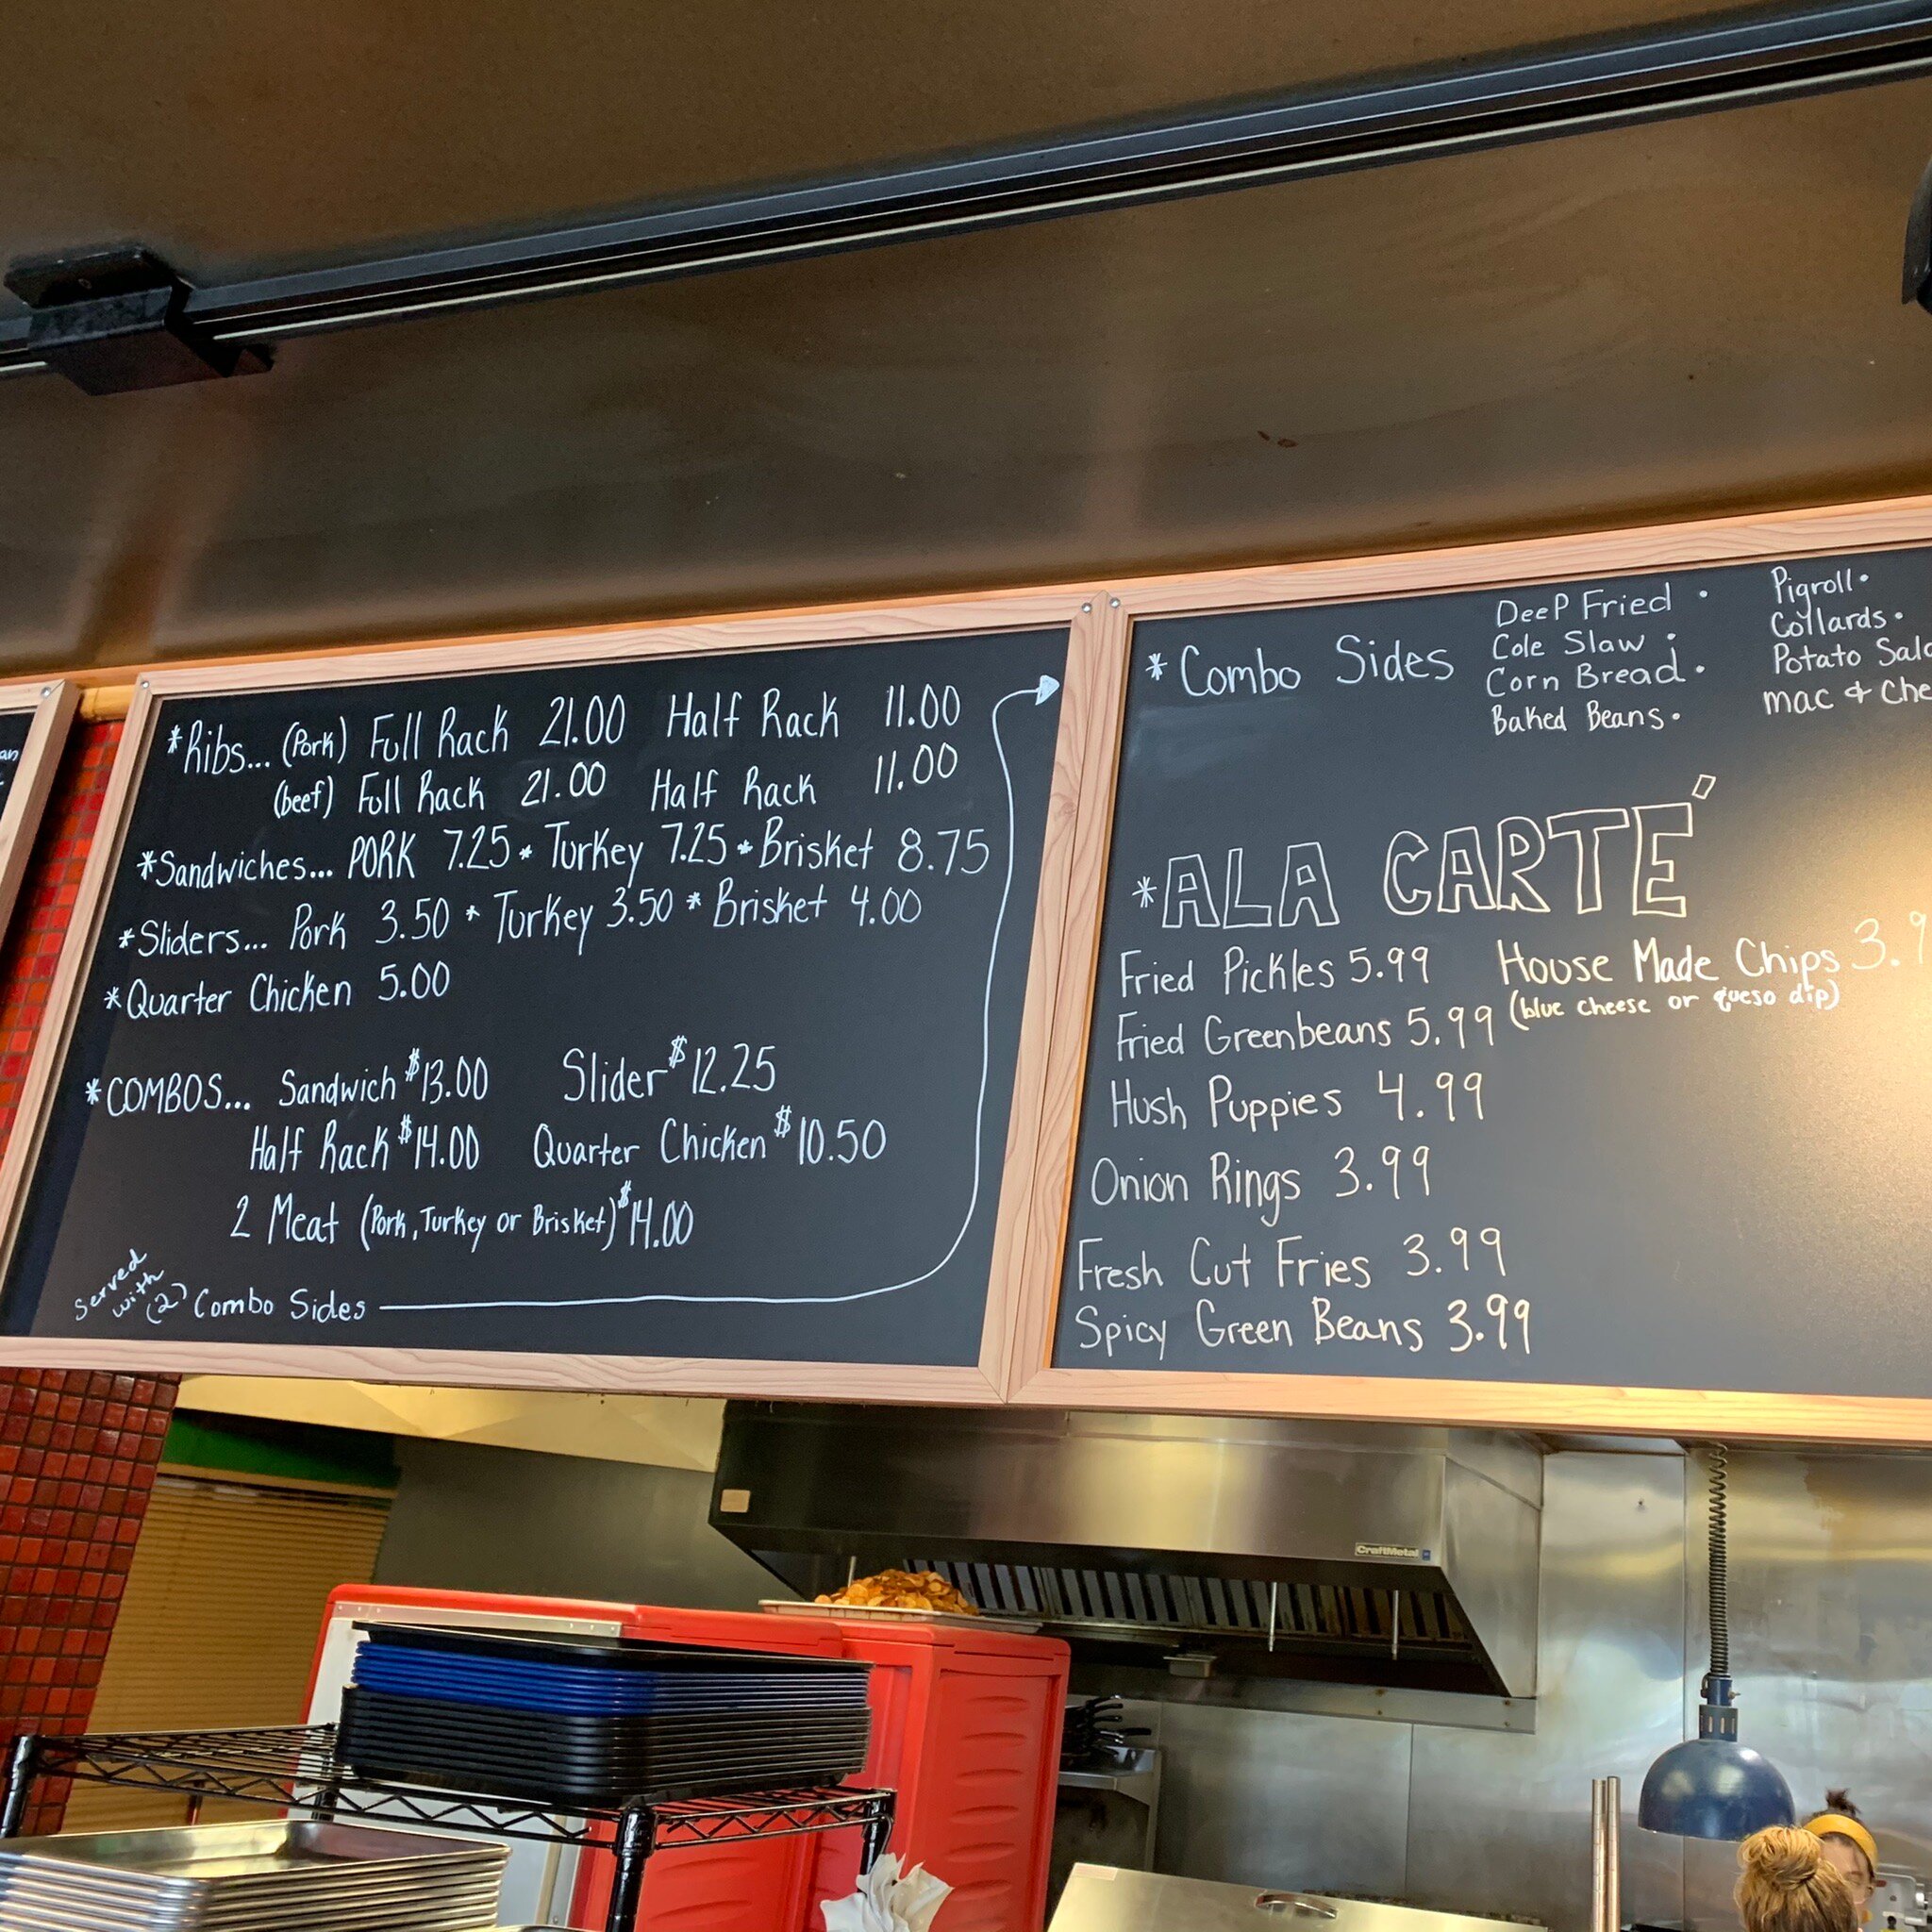 *Ribs... (Pork) Full Rack 21.00 Half Rack 11.00
(beef) Full Rack 21.00 Half Rack 11.00
*Sandwiches... PORK 7.25 * Turkey 7.25 * Brisket 8.75
*Sliders... Pork 3.50 * Turkey 3.50 * Brisket 4.00
*Quarter Chicken 5.00
*COMBOS... Sandwich $13.00 Slider $12.25
Half Rack $14.00 Quarter Chicken $10.50
2 Meat (Pork, Turkey or Brisket) $14.00
Served with (2) Combo Sides
* Combo Sides
DeeP Fried •
Cole Slaw •
Corn Bread •
Baked Beans •
Pigroll •
Collards •
Potato Sala
mac & Che
*ALA CARTÉ
Fried Pickles 5.99 House Made Chips 3.9
(blue cheese or queso dip)
Fried Greenbeans 5.99
Hush Puppies 4.99
Onion Rings 3.99
Fresh Cut Fries 3.99
Spicy Green Beans 3.99
CraftMetal